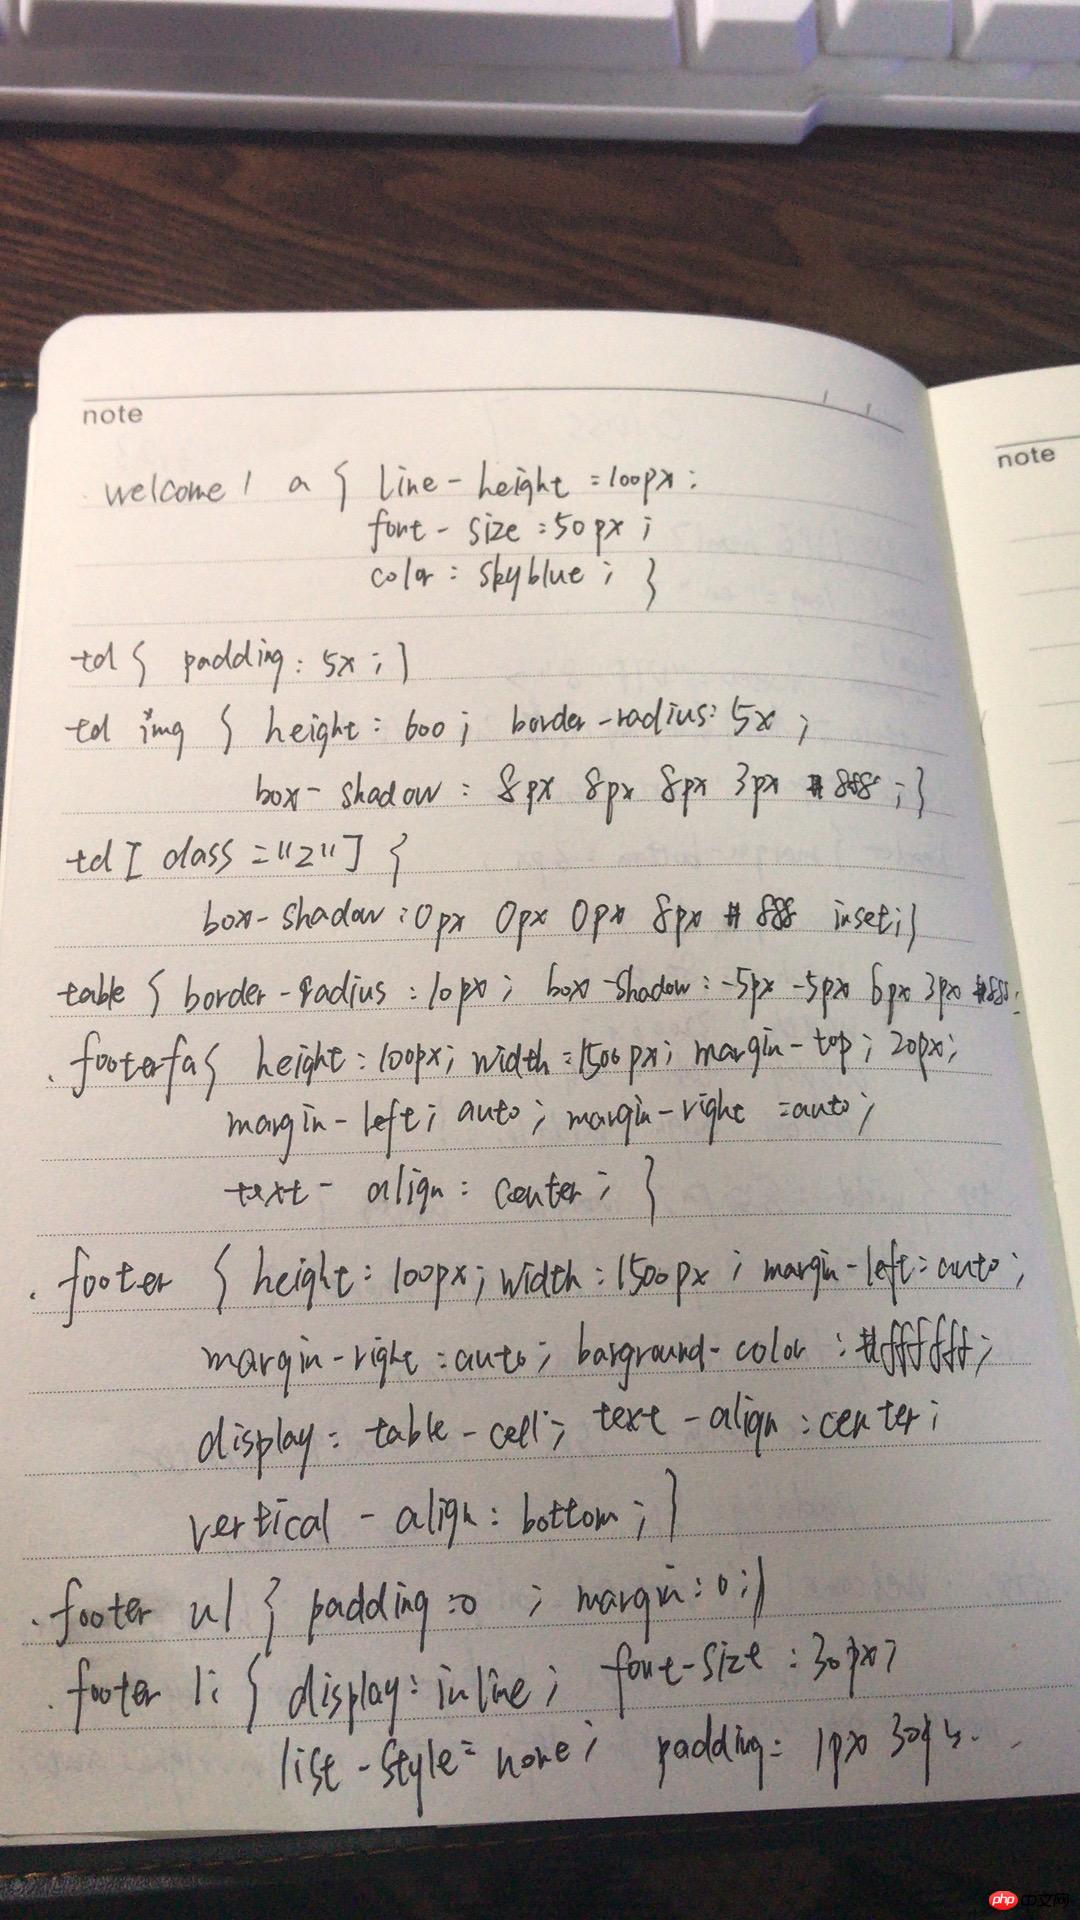 note
note
welcome1 a { line-height =100px;
font-size :50px ;
color : skyblue ; }
td { padding : 5x ; }
td img { height : 600 ; border-radius : 5x ;
box-shadow : 8px 8px 8px 3px #888 ; }
td [ class ="2" ] {
box-shadow : 0px 0px 0px 8px #888 inset; }
table { border-radius : 10px ; box-shadow : -5px -5px 6px 3px #888;
.footerfa { height : 100px; width =1500px; margin-top ; 20px;
margin-left ; auto ; margin-right =auto ;
text-align : center ; }
.footer { height : 100px ; width : 1500px ; margin-left : auto ;
margin-right : auto ; barground-color : #ffffff ;
display : table-cell ; text-align : center ;
vertical-align : bottom ; }
.footer ul { padding :0 ; margin : 0 ; }
.footer li { display : inline ; font-size : 30px ;
list-style = none ; padding : 1px
php中文网